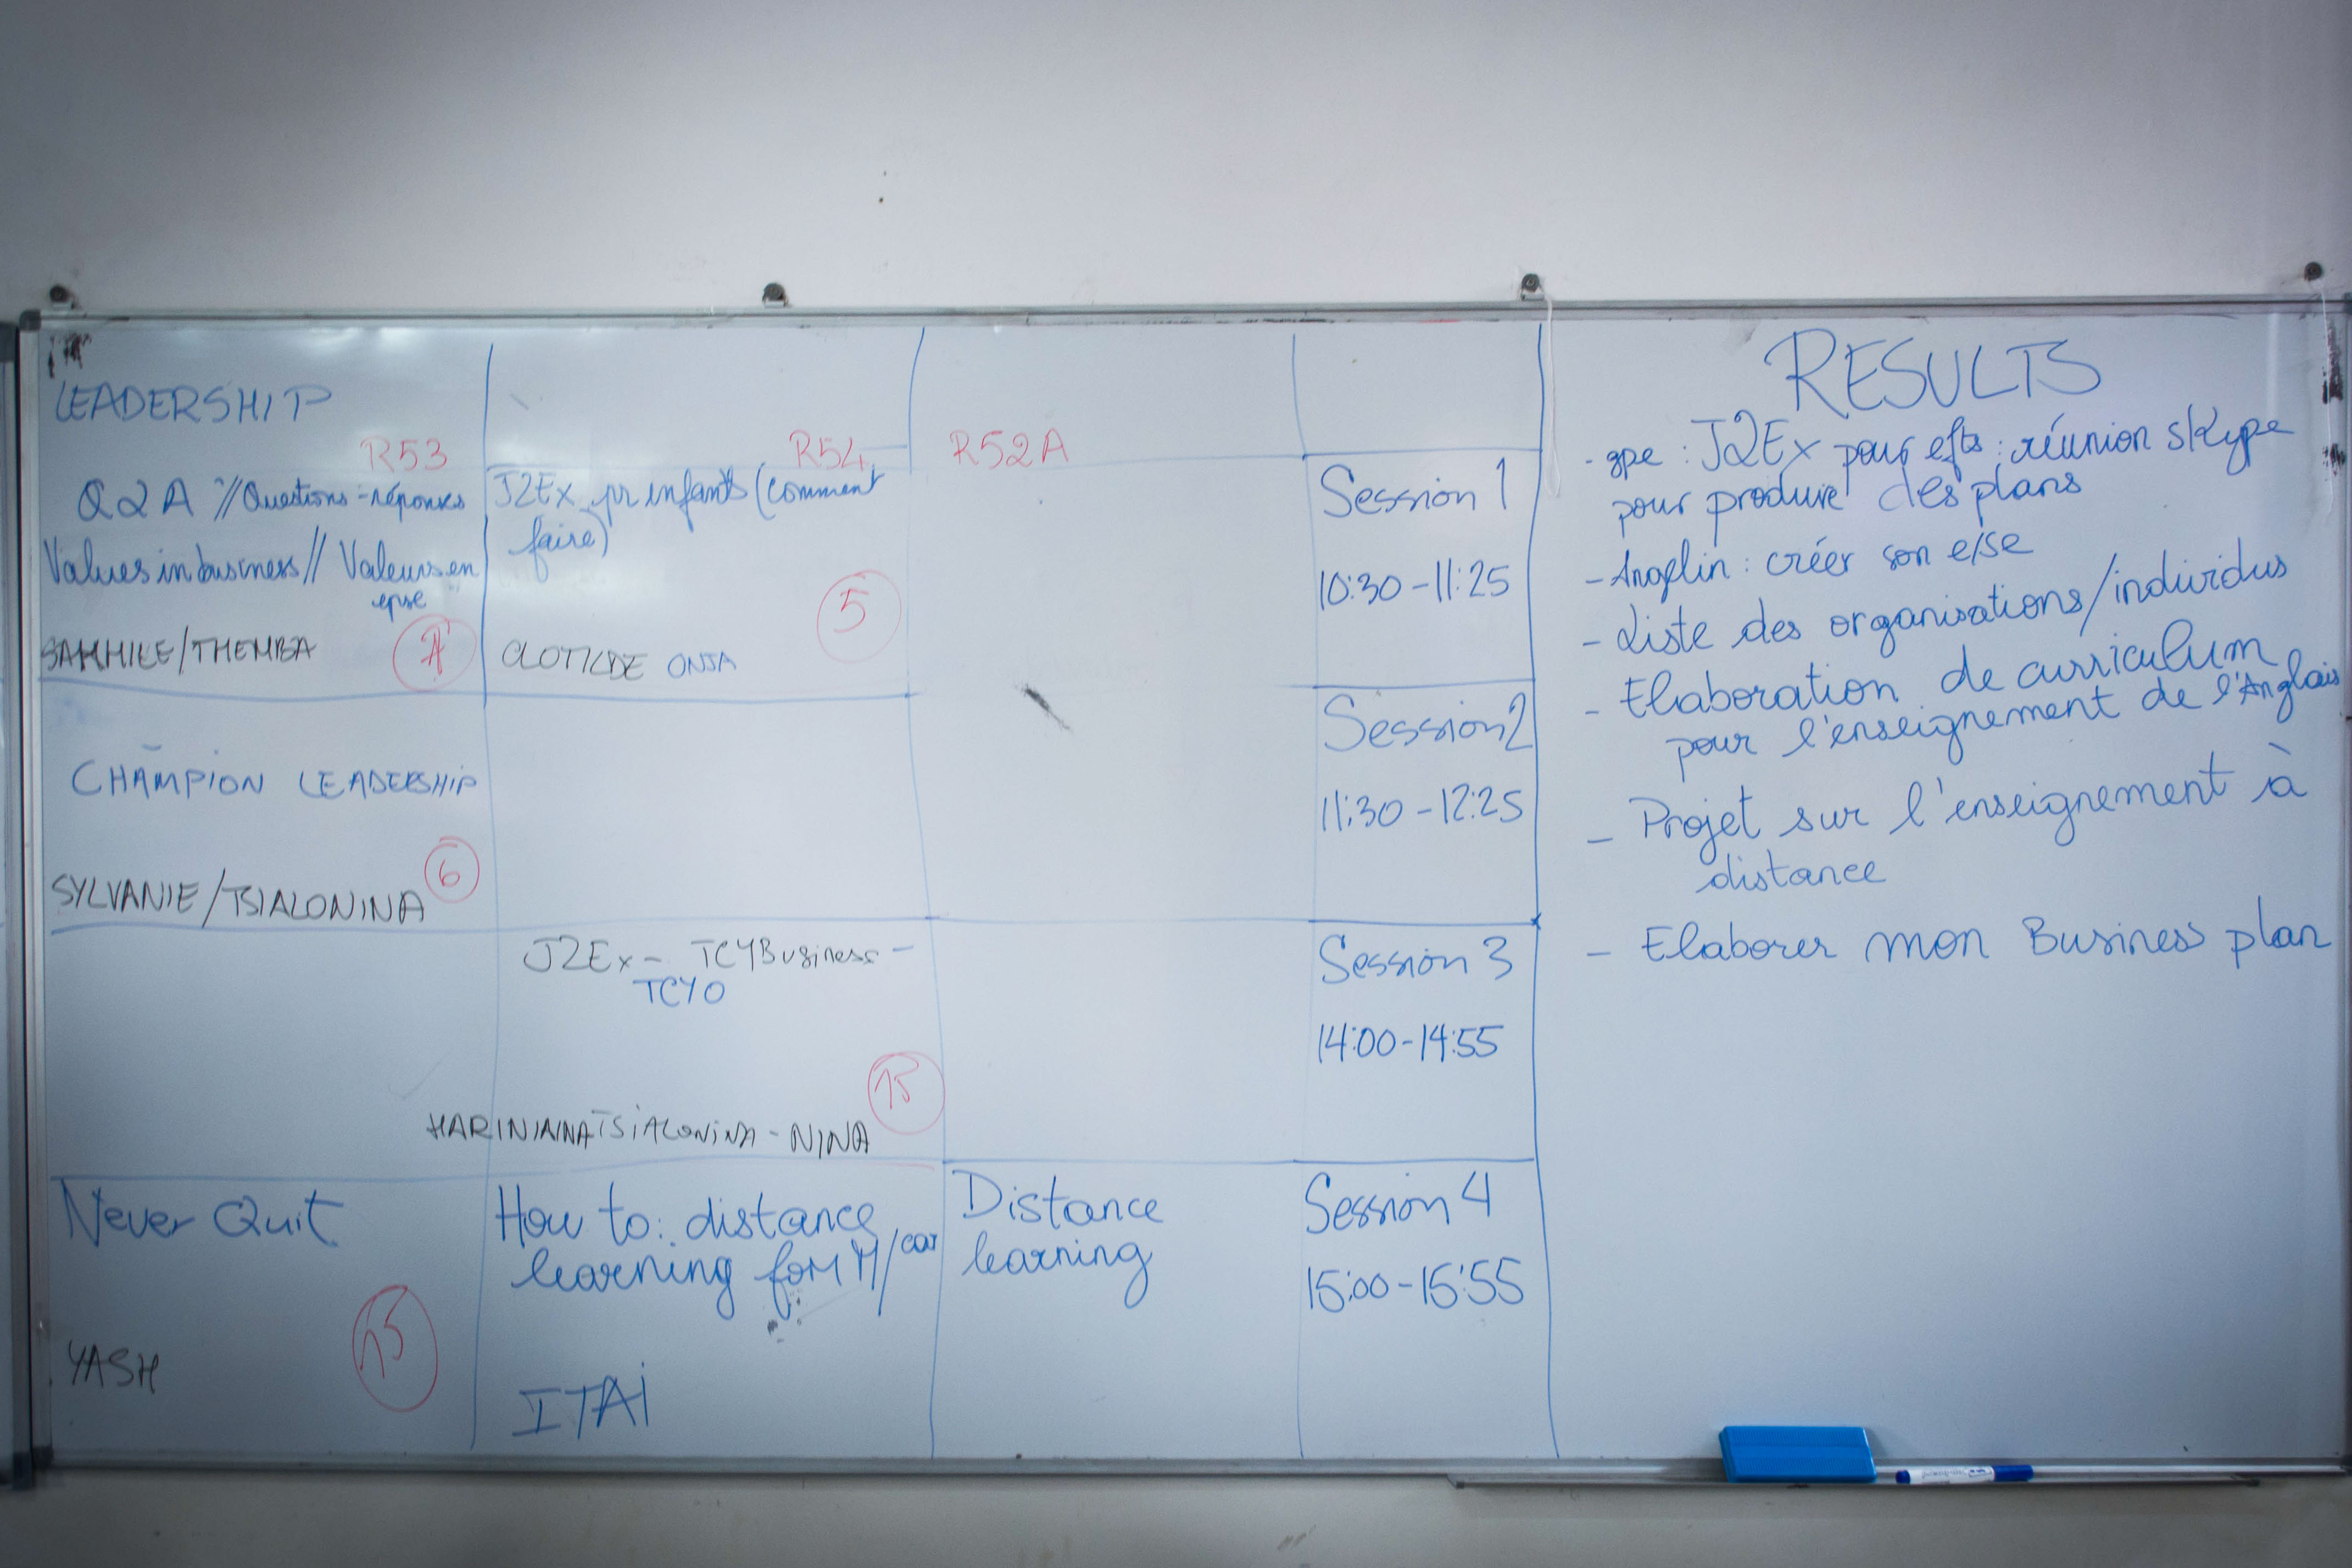 LEADERSHIP
R53
R54
R52A
Q&A // Questions-réponses
Values in business // Valeurs en
epse
SAKHILE/THEMBA
J2Ex pr enfants (comment
faire)
5
CLOTILDE ONJA
Session 1
10:30-11:25
CHAMPION LEADERSHIP
6
SYLVANIE/TSIALONINA
Session 2
11:30-12:25
J2Ex- TCYBusiness-
TCYO
15
TSIALONINA-NINA
Session 3
14:00-14:55
Never Quit
15
YASH
How to: distance
learning for M/car
ITAI
Distance
learning
Session 4
15:00-15:55
RESULTS
- gpe : J2Ex pour efts : réunion skype
pour produire des plans
- Angelin : créer son e/se
- Liste des organisations/individus
- Elaboration de curriculum
pour l'enseignement de l'Anglais
- Projet sur l'enseignement à
distance
- Elaborer mon Business plan